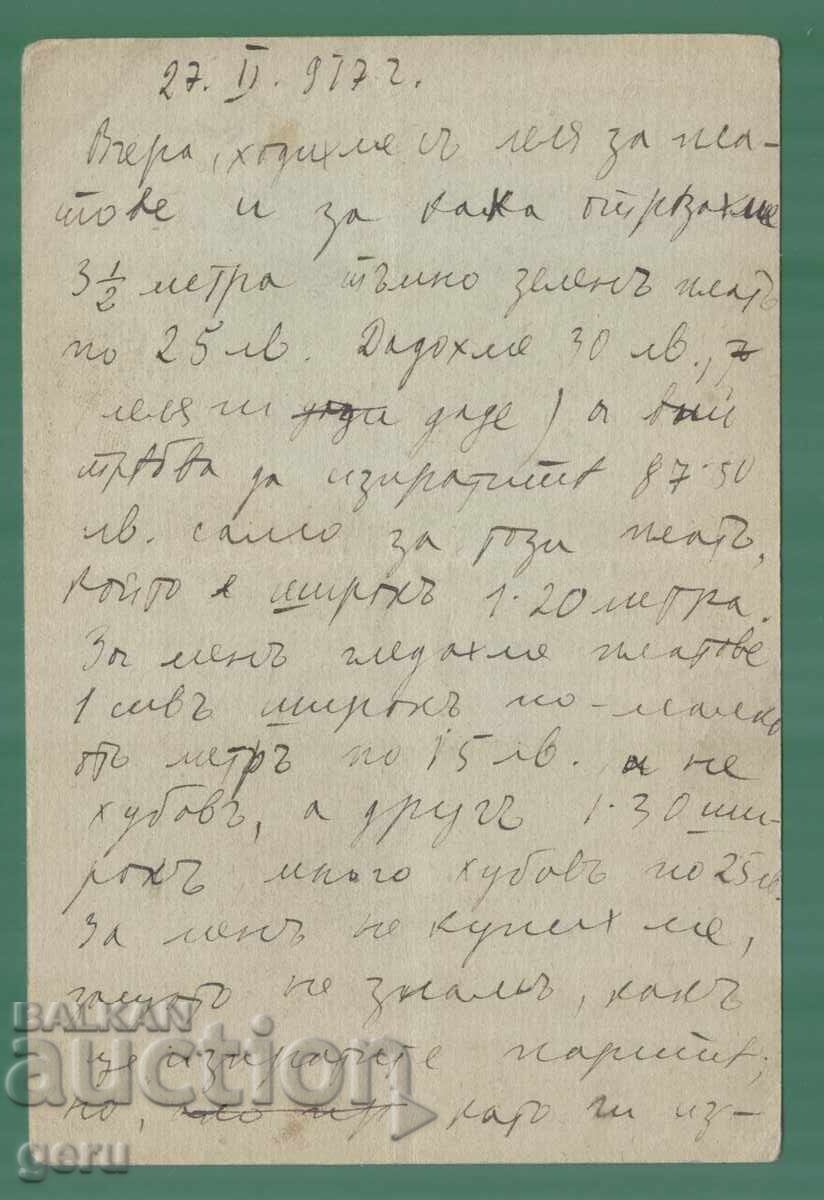 27. II. 917 г.
Вчера, ходихме съ леля за пла-
тове и за кака отрѣзахме
3 1/2 метра тъмно зеленъ платъ
по 25 лв. Дадохме 30 лв.,
леля ги даде) а вий
трѣбва да изпратите 87·50
лв. само за този платъ,
който е широкъ 1·20 метра.
За менъ гледахме платове
1 сивъ широкъ по-малко
отъ метръ по 15 лв. и не
хубовъ, а другъ 1·30 ши-
рокъ много хубовъ по 25 лв.
За менъ не купихме,
защото не знамъ, какъ
ще изпратите паритѣ;
но, като ги из-
BALKAN
auction
geru